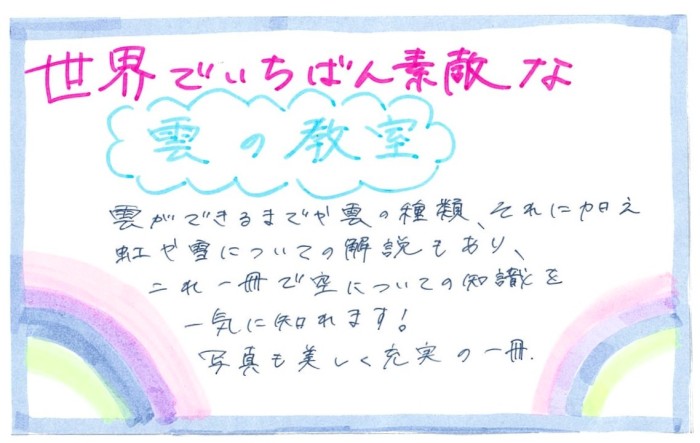 世界でいちばん素敵な
雲の教室
雲ができるまでや雲の種類、それに加え
虹や雪についての解説もあり、
これ一冊で空についての知識を
一気に知れます!
写真も美しく充実の一冊.